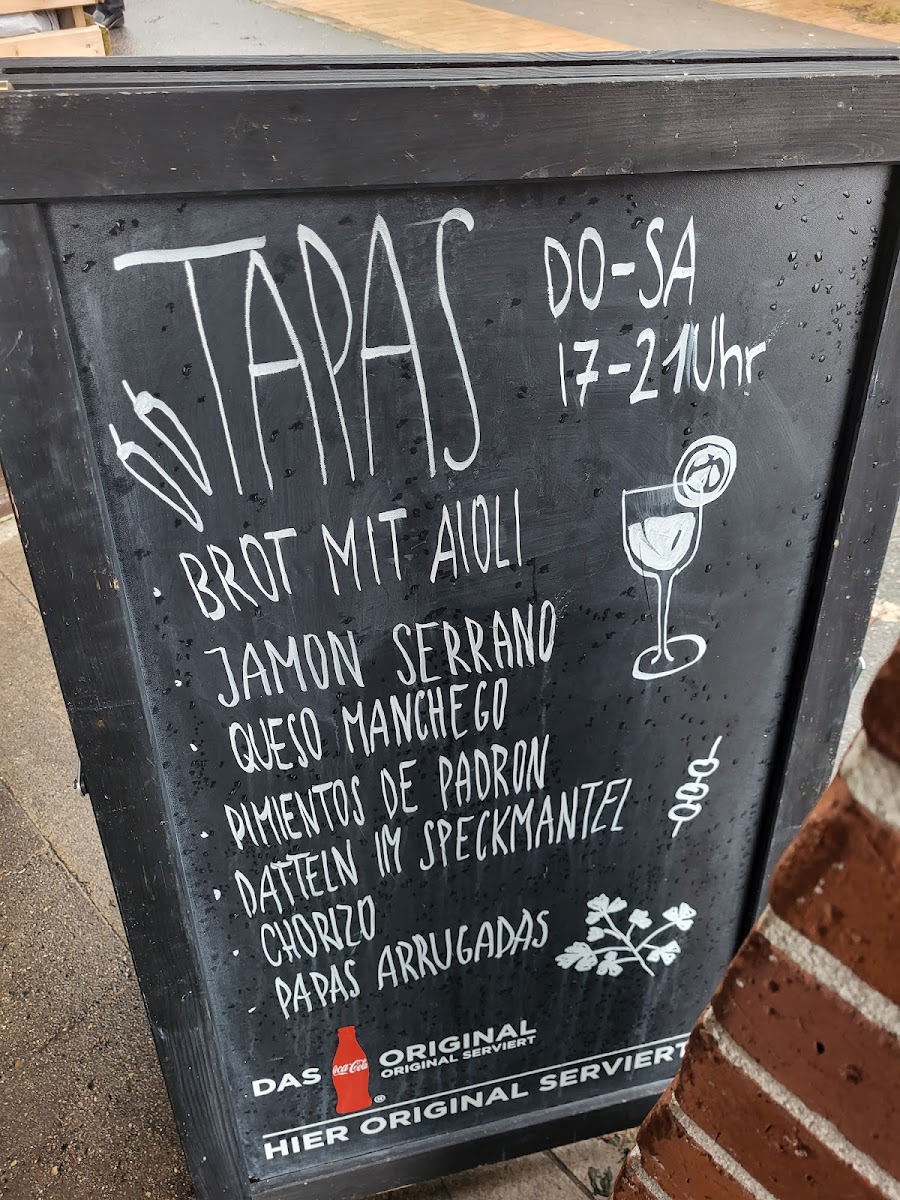 TAPAS
DO-SA
17-21Uhr
· BROT MIT AIOLI
· JAMON SERRANO
· QUESO MANCHEGO
· PIMIENTOS DE PADRON
· DATTELN IM SPECKMANTEL
· CHORIZO
· PAPAS ARRUGADAS
DAS Coca-Cola ® ORIGINAL
ORIGINAL SERVIERT
HIER ORIGINAL SERVIERT